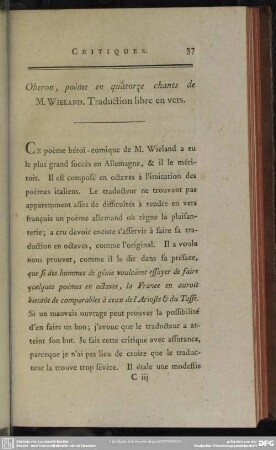 CRITIQUES. 37
Oberon, poëme en quatorze chants de
M. WIELAND. Traduction libre en vers.
CE poëme héroï-comique de M. Wieland a eu
le plus grand succès en Allemagne, & il le méri-
toit. Il est composé en octaves à l'imitation des
poëmes italiens. Le traducteur ne trouvant pas
apparemment assez de difficultés à rendre en vers
françois un poëme allemand où règne la plaisan-
terie; a cru devoir encore s'asservir à faire sa tra-
duction en octaves, comme l'original. Il a voulu
nous prouver, comme il le dit dans sa préface,
que si des hommes de génie vouloient essayer de faire
quelques poëmes en octaves, la France en auroit
bientôt de comparables à ceux de l'Arioste & du Tasse.
Si un mauvais ouvrage peut prouver la possibilité
d'en faire un bon; j'avoue que le traducteur a at-
teint son but. Je fais cette critique avec assurance,
parceque je n'ai pas lieu de croire que le traduc-
teur la trouve trop sévère. Il étale une modestie
C iij